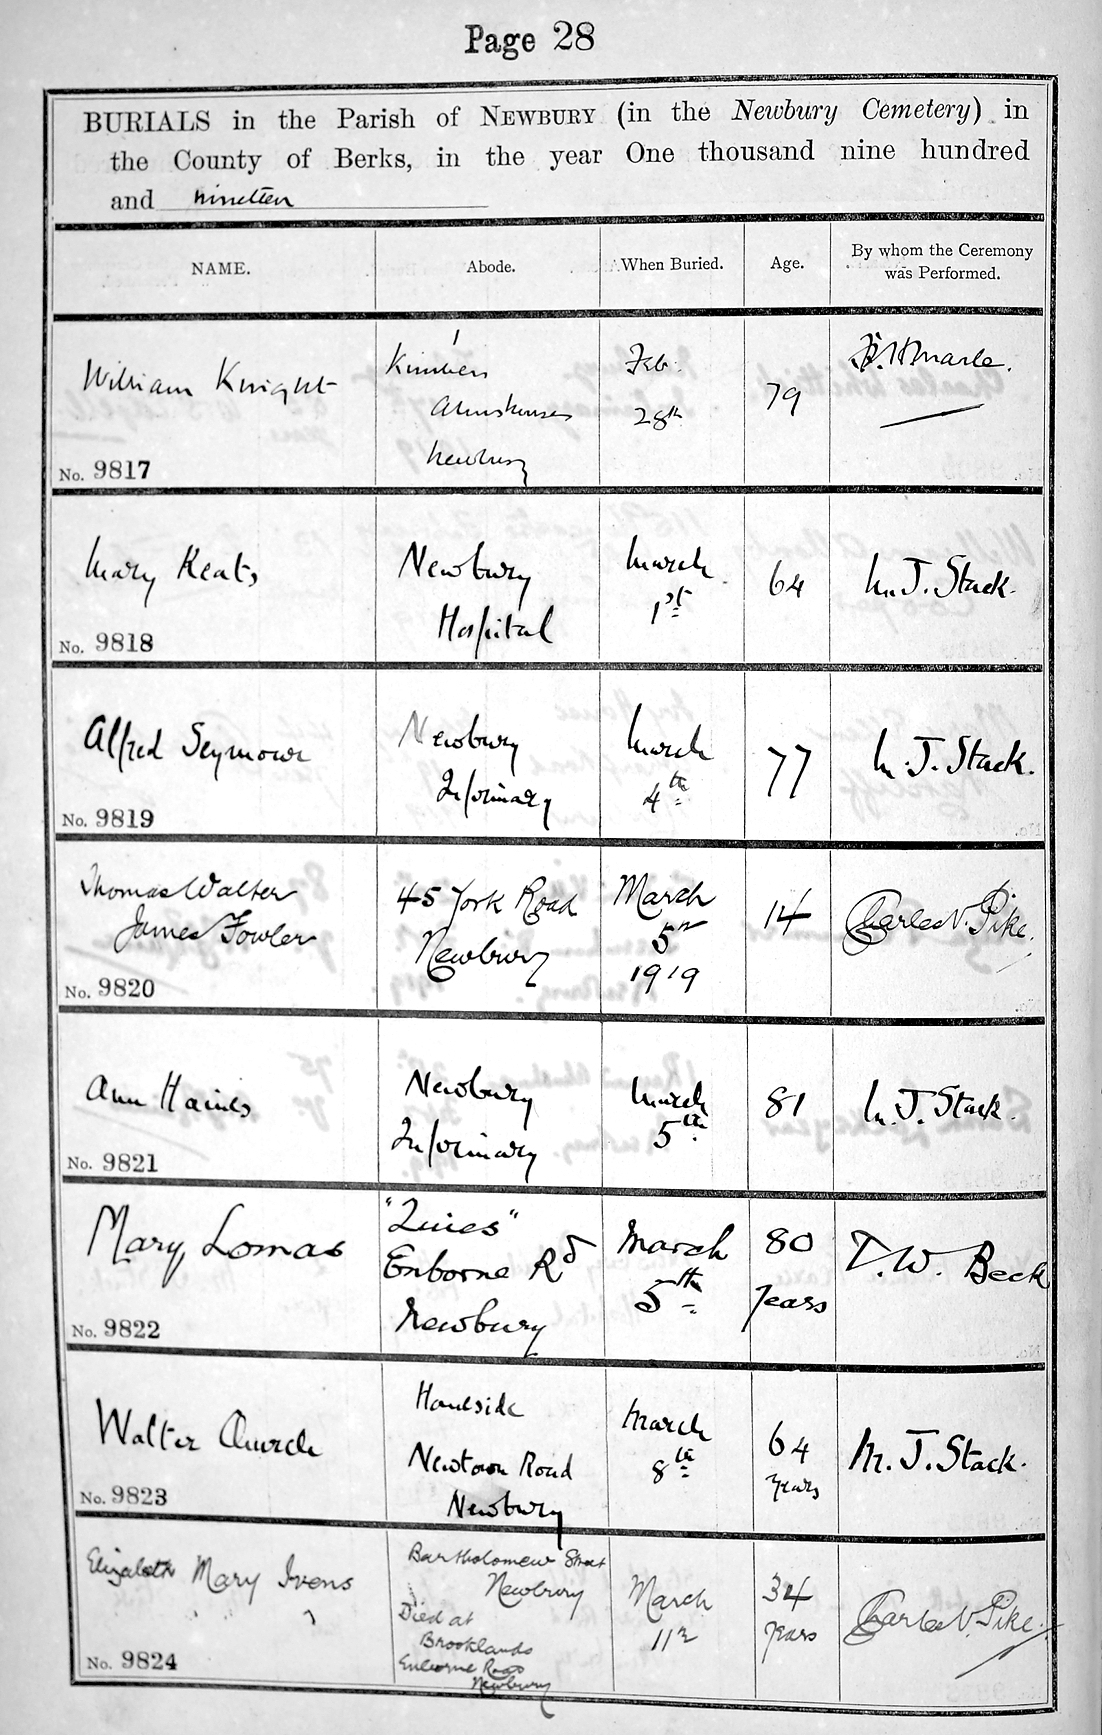 Page 28
BURIALS in the Parish of NEWBURY (in the Newbury Cemetery) in
the County of Berks, in the year One thousand nine hundred
and nineteen
NAME.
Abode.
When Buried.
Age.
By whom the Ceremony
was Performed.
William Knight
No. 9817
Kimber's
Almshouses
Newbury
Feb.
28th
79
Mary Keats
No. 9818
Newbury
Hospital
March
1st
64
M. J. Stack.
Alfred Seymour
No. 9819
Newbury
Infirmary
March
4th
77
M. J. Stack.
Thomas Walter
James Fowler
No. 9820
45 York Road
Newbury
March
5th
1919
14
Charles V. Pike.
Ann Haines
No. 9821
Newbury
Infirmary
March
5th
81
M. J. Stack.
Mary Lomas
No. 9822
Enborne Rd
Newbury
March
5th
80
years
T. W. Beck
Walter Church
No. 9823
Newtown Road
Newbury
March
8th
64
years
M. J. Stack.
Elizabeth Mary Ivens
No. 9824
Bartholomew Street
Newbury
Died at
Brooklands
Enborne Road
Newbury
March
11th
34
years
Charles V. Pike.